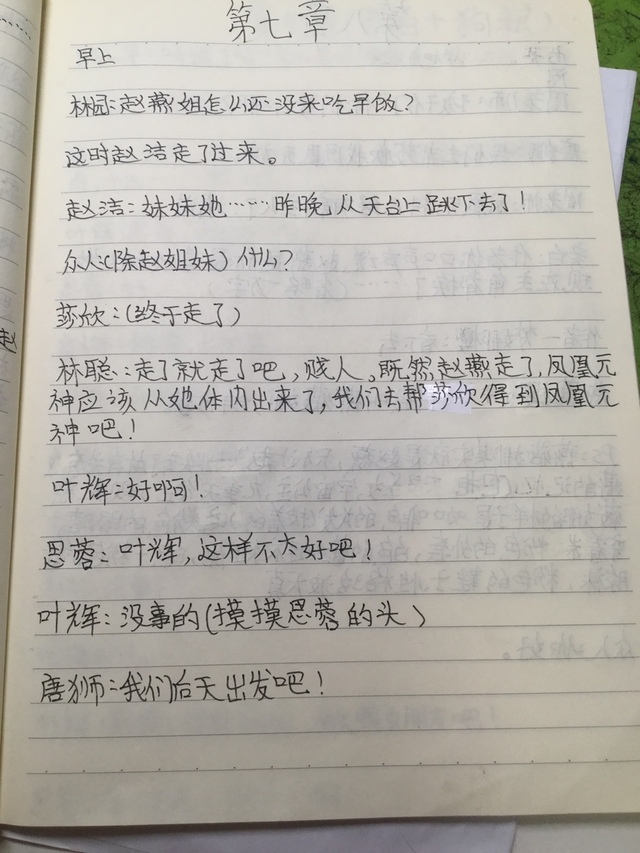 第七章
早上
林园:赵燕姐怎么还没来吃早饭?
这时赵洁走了过来。
赵洁:妹妹她……昨晚从天台上跳下去了!
众人:(除赵姐妹)什么?
莎欣:(终于走了)
林聪:走了就走了吧,贱人。既然赵燕走了,凤凰元
神应该从她体内出来了,我们去帮莎欣得到凤凰元
神吧!
叶辉:好啊!
思蓉:叶辉,这样不太好吧!
叶辉:没事的(摸摸思蓉的头)
唐狮:我们后天出发吧!
赵